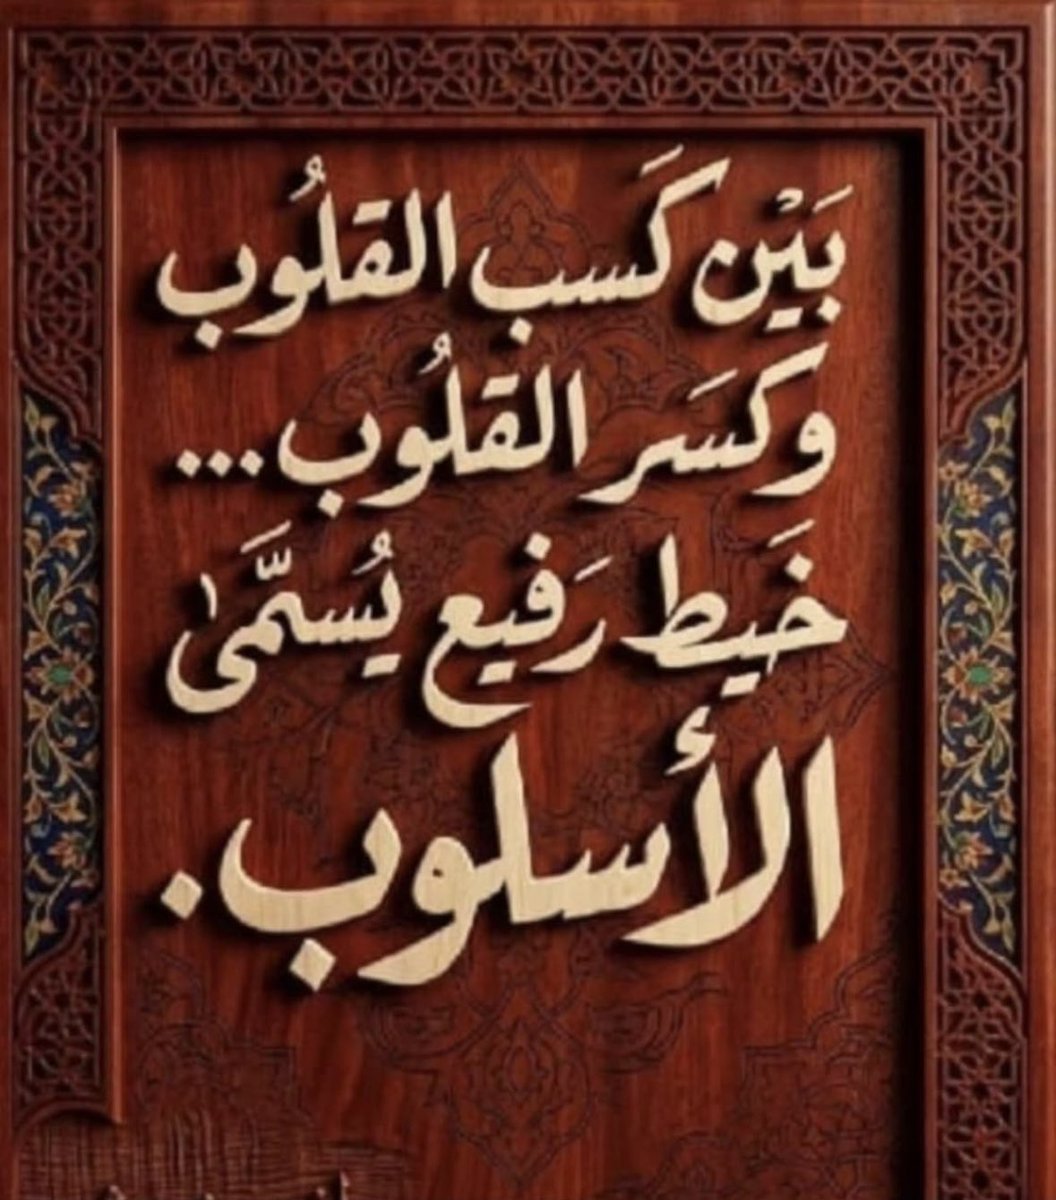 بَيْن كَسب القلُوب
وكسَر القلُوب...
خَيط رَفيع يُسمَّىٰ
الأسلوب.